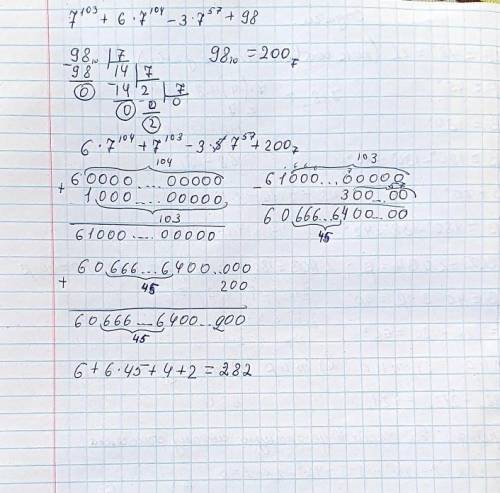 7^103 + 6 · 7^104 − 3 · 7^57 + 98
98₁₀ | 7
− 98 14 | 7
0 −14 2 | 7
0 − 0 0
2
98₁₀ = 200₇
6 · 7^104 + 7^103 − 3 · 7^57 + 200₇
104
+ 60000 .... 00000
1000 .... 00000
103
61000 .... 00000
103
6 6 6
− 61000 ... 00000
300 ... 00
60666 ... 6400 ... 00
45
+ 60666 ... 6400 .. 000
45
200
60666 .... 6400 .. 200
45
6 + 6 · 45 + 4 + 2 = 282